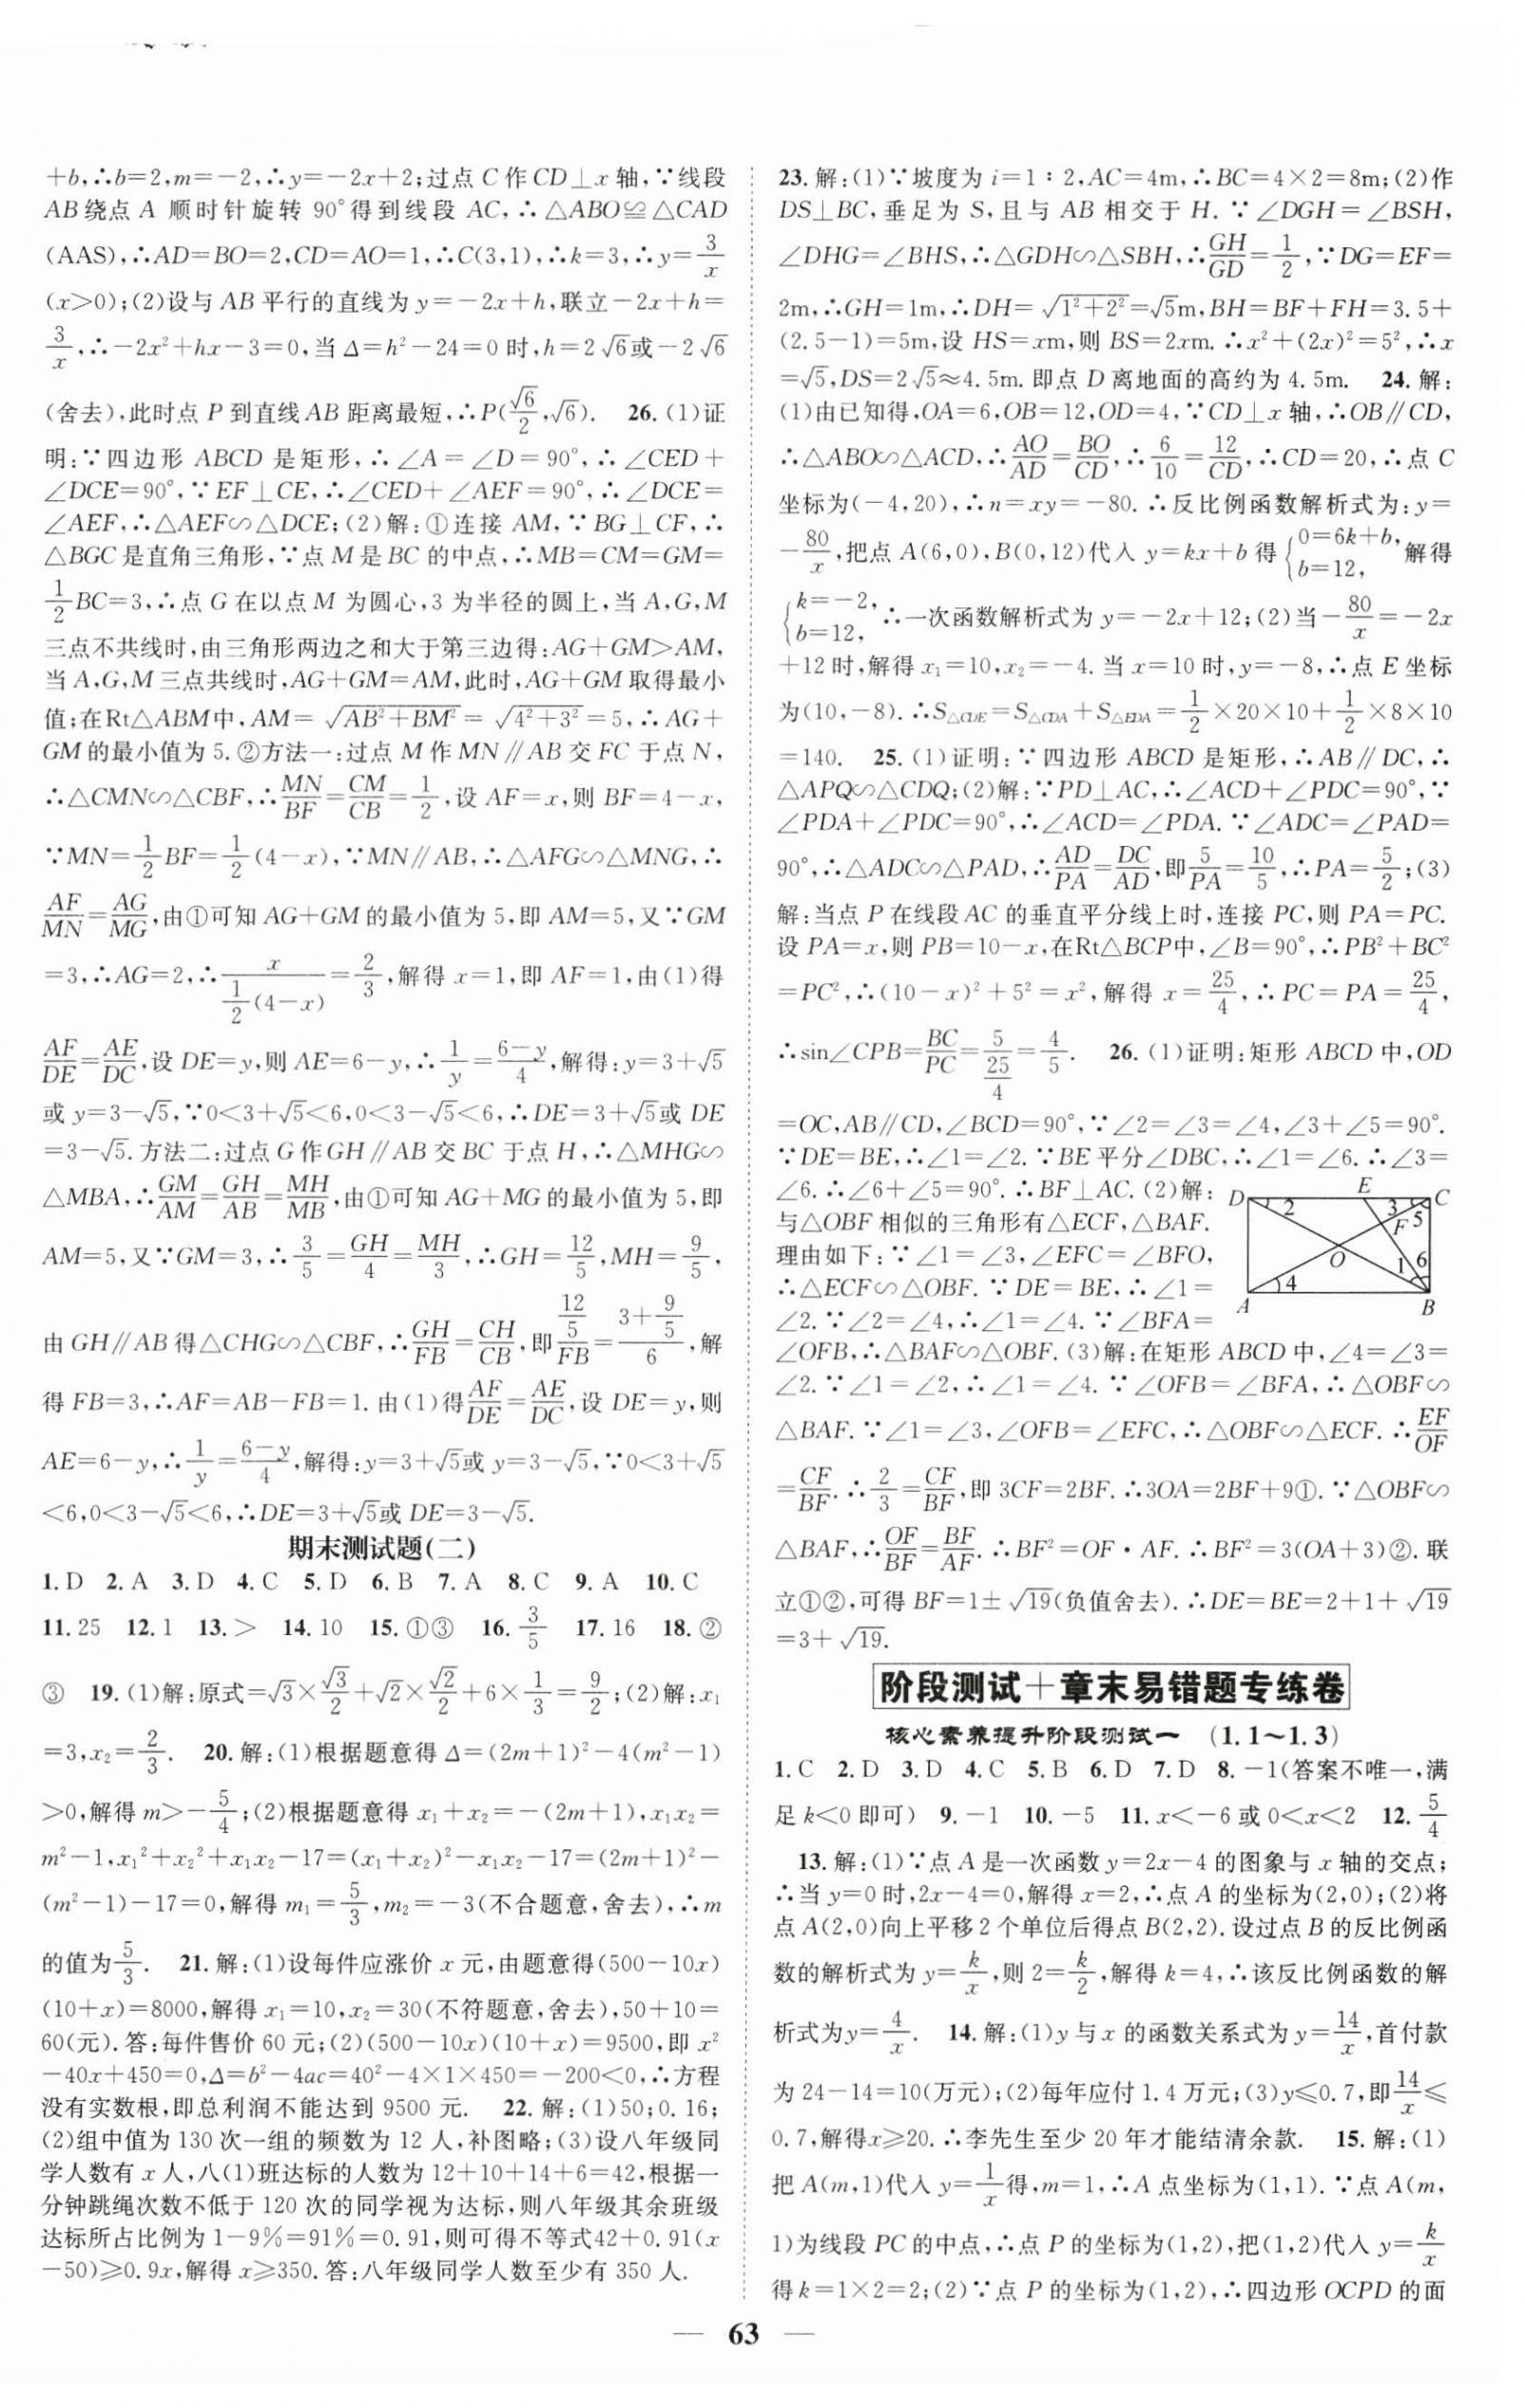 +b,∴b=2,m=-2,∴y=-2x+2;过点C作CD⊥x轴,∵线段
AB绕点A 顺时针旋转 90°得到线段 AC,∴△ABO≌△CAD
(AAS),∴AD=BO=2,CD=AO=1,∴C(3,1),∴k=3,∴y=3/x
(x>0);(2)设与AB平行的直线为y=-2x+h,联立-2x+h=
3/x,∴-2x²+hx-3=0,当Δ=h²-24=0时,h=2√6或-2√6
(舍去),此时点P到直线AB距离最短,∴P(√6/2,√6). 26.(1)证
明:∵四边形 ABCD 是矩形,∴∠A=∠D=90°,∴∠CED+
∠DCE=90°,∵EF⊥CE,∴∠CED+∠AEF=90°,∴∠DCE=
∠AEF,∴△AEF∽△DCE;(2)解:①连接 AM,∵BG⊥CF,∴
△BGC是直角三角形,∵点M是BC的中点,∴MB=CM=GM=
1/2BC=3,∴点G在以点M为圆心,3为半径的圆上,当A,G,M
三点不共线时,由三角形两边之和大于第三边得:AG+GM>AM,
当A,G,M三点共线时,AG+GM=AM,此时,AG+GM取得最小
值;在Rt△ABM中,AM=√(AB²+BM²)=√(4²+3²)=5,∴AG+
GM的最小值为5.②方法一:过点M作MN∥AB交FC于点N,
∴△CMN∽△CBF,∴MN/BF=CM/CB=1/2,设AF=x,则BF=4-x,
∵MN=1/2BF=1/2(4-x),∵MN∥AB,∴△AFG∽△MNG,∴
AF/MN=AG/MG,由①可知AG+GM的最小值为5,即AM=5,又∵GM
=3,∴AG=2,∴x/(1/2(4-x))=2/3,解得x=1,即AF=1,由(1)得
AF/DE=AE/DC,设DE=y,则AE=6-y,∴1/y=(6-y)/4,解得:y=3+√5
或y=3-√5,∵0<3+√5<6,0<3-√5<6,∴DE=3+√5或DE
=3-√5.方法二:过点G作GH∥AB交BC于点H,∴△MHG∽
△MBA,∴GM/AM=GH/AB=MH/MB,由①可知AG+MG的最小值为5,即
AM=5,又∵GM=3,∴3/5=GH/4=MH/3,∴GH=12/5,MH=9/5,
由GH∥AB得△CHG∽△CBF,∴GH/FB=CH/CB,即(12/5)/FB=(3+9/5)/6,解
得FB=3,∴AF=AB-FB=1.由(1)得AF/DE=AE/DC,设DE=y,则
AE=6-y,∴1/y=(6-y)/4,解得:y=3+√5或y=3-√5,∵0<3+√5
<6,0<3-√5<6,∴DE=3+√5或DE=3-√5.
期末测试题(二)
1.D 2.A 3.D 4.C 5.D 6.B 7.A 8.C 9.A 10.C
11.25 12.1 13.> 14.10 15.①③ 16.3/5 17.16 18.②
③ 19.(1)解:原式=√3×√3/2+√2×√2/2+6×1/3=9/2;(2)解:x₁
=3,x₂=2/3. 20.解:(1)根据题意得Δ=(2m+1)²-4(m²-1)
>0,解得m>-5/4;(2)根据题意得x₁+x₂=-(2m+1),x₁x₂=
m²-1,x₁²+x₂²+x₁x₂-17=(x₁+x₂)²-x₁x₂-17=(2m+1)²-
(m²-1)-17=0,解得m₁=5/3,m₂=-3(不合题意,舍去),∴m
的值为5/3. 21.解:(1)设每件应涨价x元,由题意得(500-10x)
(10+x)=8000,解得x₁=10,x₂=30(不符题意,舍去),50+10=
60(元).答:每件售价60元;(2)(500-10x)(10+x)=9500,即x²
-40x+450=0,Δ=b²-4ac=40²-4×1×450=-200<0,∴方程
没有实数根,即总利润不能达到9500元. 22.解:(1)50;0.16;
(2)组中值为130次一组的频数为12人,补图略;(3)设八年级同
学人数有x人,八(1)班达标的人数为12+10+14+6=42,根据一
分钟跳绳次数不低于120次的同学视为达标,则八年级其余班级
达标所占比例为1-9%=91%=0.91,则可得不等式42+0.91(x
-50)≥0.9x,解得x≥350.答:八年级同学人数至少有350人.
23.解:(1)∵坡度为i=1∶2,AC=4m,∴BC=4×2=8m;(2)作
DS⊥BC,垂足为S,且与AB相交于H.∵∠DGH=∠BSH,
∠DHG=∠BHS,∴△GDH∽△SBH,∴GH/GD=1/2,∵DG=EF=
2m,∴GH=1m,∴DH=√(1²+2²)=√5m,BH=BF+FH=3.5+
(2.5-1)=5m,设HS=xm,则BS=2xm.∴x²+(2x)²=5²,∴x
=√5,DS=2√5≈4.5m.即点D离地面的高约为4.5m. 24.解:
(1)由已知得,OA=6,OB=12,OD=4,∵CD⊥x轴,∴OB∥CD,
∴△ABO∽△ACD,∴AO/AD=BO/CD,∴6/10=12/CD,∴CD=20,∴点C
坐标为(-4,20),∴n=xy=-80.∴反比例函数解析式为:y=
-80/x,把点A(6,0),B(0,12)代入y=kx+b得{0=6k+b, b=12,解得
{k=-2, b=12,∴一次函数解析式为y=-2x+12;(2)当-80/x=-2x
+12时,解得x₁=10,x₂=-4.当x=10时,y=-8,∴点E坐标
为(10,-8).∴S△CDE=S△CDA+S△EDA=1/2×20×10+1/2×8×10
=140. 25.(1)证明:∵四边形ABCD是矩形,∴AB∥DC,∴
△APQ∽△CDQ;(2)解:∵PD⊥AC,∴∠ACD+∠PDC=90°,∵
∠PDA+∠PDC=90°,∴∠ACD=∠PDA.∵∠ADC=∠PAD=
90°,∴△ADC∽△PAD,∴AD/PA=DC/AD,即5/PA=10/5,∴PA=5/2;(3)
解:当点P在线段AC的垂直平分线上时,连接PC,则PA=PC.
设PA=x,则PB=10-x,在Rt△BCP中,∠B=90°,∴PB²+BC²
=PC²,∴(10-x)²+5²=x²,解得x=25/4,∴PC=PA=25/4,
∴sin∠CPB=BC/PC=5/(25/4)=4/5. 26.(1)证明:矩形ABCD中,OD
=OC,AB∥CD,∠BCD=90°,∵∠2=∠3=∠4,∠3+∠5=90°.
∵DE=BE,∴∠1=∠2.∵BE平分∠DBC,∴∠1=∠6.∴∠3=
∠6.∴∠6+∠5=90°.∴BF⊥AC.(2)解:
与△OBF相似的三角形有△ECF,△BAF.
理由如下:∵∠1=∠3,∠EFC=∠BFO,
∴△ECF∽△OBF.∵DE=BE,∴∠1=
∠2.∵∠2=∠4,∴∠1=∠4.∵∠BFA=
D E C 2 3 5 F O 1 6 4 A B
∠OFB,∴△BAF∽△OBF.(3)解:在矩形ABCD中,∠4=∠3=
∠2.∵∠1=∠2,∴∠1=∠4.∵∠OFB=∠BFA,∴△OBF∽
△BAF.∵∠1=∠3,∠OFB=∠EFC,∴△OBF∽△ECF.∴EF/OF
=CF/BF.∴2/3=CF/BF,即3CF=2BF.∴3OA=2BF+9①.∵△OBF∽
△BAF,∴OF/BF=BF/AF.∴BF²=OF·AF.∴BF²=3(OA+3)②.联
立①②,可得BF=1±√19(负值舍去).∴DE=BE=2+1+√19
=3+√19.
阶段测试+章末易错题专练卷
核心素养提升阶段测试一 (1.1~1.3)
1.C 2.D 3.D 4.C 5.B 6.D 7.D 8.-1(答案不唯一,满
足k<0即可) 9.-1 10.-5 11.x<-6或0<x<2 12.5/4
13.解:(1)∵点A是一次函数y=2x-4的图象与x轴的交点;
∴当y=0时,2x-4=0,解得x=2,∴点A的坐标为(2,0);(2)将
点A(2,0)向上平移2个单位后得点B(2,2).设过点B的反比例函
数的解析式为y=k/x,则2=k/2,解得k=4,∴该反比例函数的解
析式为y=4/x. 14.解:(1)y与x的函数关系式为y=14/x,首付款
为24-14=10(万元);(2)每年应付1.4万元;(3)y≤0.7,即14/x≤
0.7,解得x≥20.∴李先生至少20年才能结清余款. 15.解:(1)
把A(m,1)代入y=1/x得,m=1,∴A点坐标为(1,1).∵点A(m,
1)为线段PC的中点,∴点P的坐标为(1,2),把(1,2)代入y=k/x
得k=1×2=2;(2)∵点P的坐标为(1,2),∴四边形OCPD的面
— 63 —